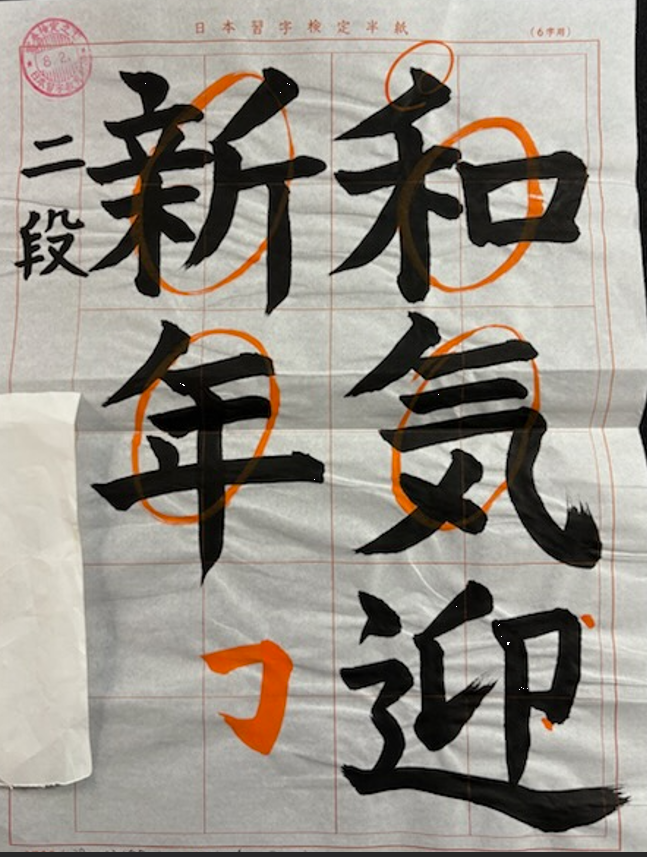 日本習字検定半紙
(6字用)
和気迎
新年
二段
8.2.